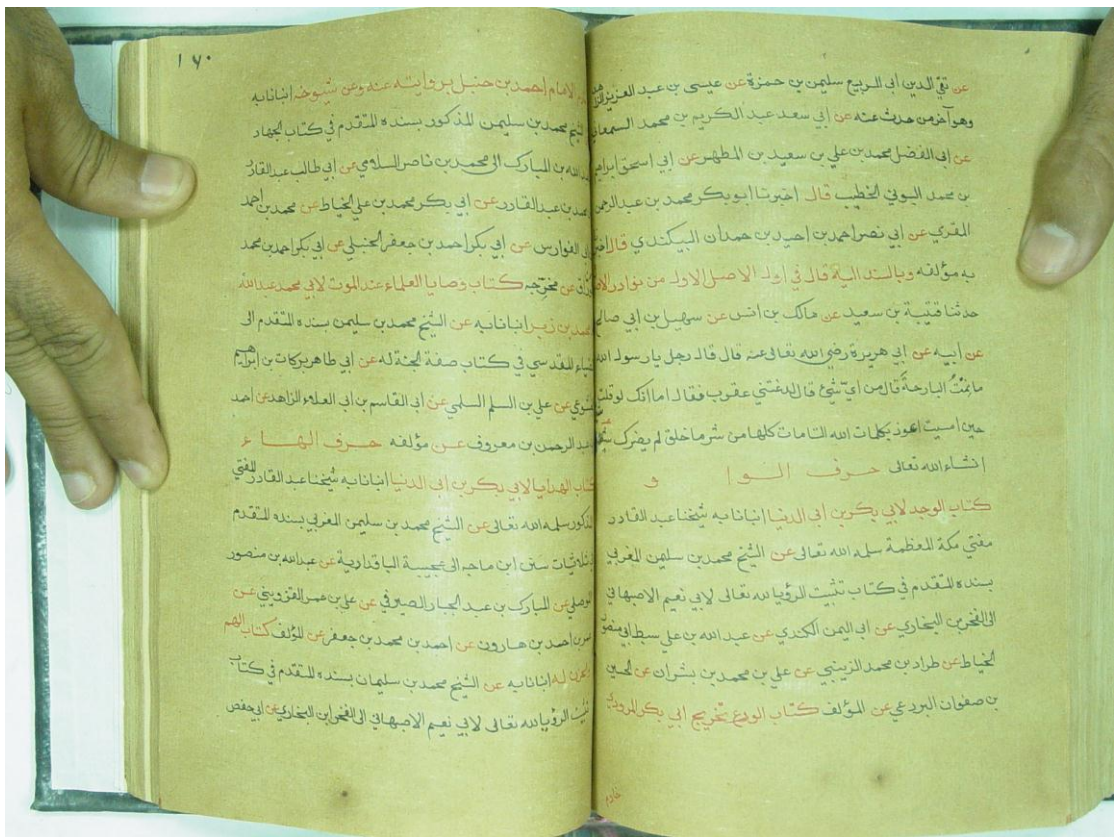 عن تقي الدين ابي الربيع سليمن بن حمزة عن عيسى بن عبد العزيز
وهو آخر من حدث عنه عن أبي سعد عبد الكريم بن محمد السمعاني
عن ابي الفضل محمد بن علي بن سعيد بن المطهر عن ابي اسحق ابراهيم
بن محمد البوني الخطيب قال اخبرنا ابو بكر محمد بن عبد الرحمن
المقري عن ابي نصر احمد بن احيد بن حمدان البيكندي قال
به مؤلفه وبالسند اليه قال في اول الاصل الاول من نوادر
حدثنا قتيبة بن سعيد عن مالك بن انس عن سهيل بن ابي صالح
عن أبيه عن ابي هريرة رضي الله تعالى عنه قال قال رجل يا رسول الله
ما نمتُ البارحة قال من ايّ شئ قال لدغتني عقرب فقال اما انك لو قلت
حين امسيت اعوذ بكلمات الله التامات كلها من شر ما خلق لم يضرك
انشاء الله تعالى حرف الوا و
كتاب الوجد لابي بكر بن ابي الدنيا انبانا به شيخنا عبد القادر
مفتي مكة المعظمة سلمه الله تعالى عن الشيخ محمد بن سليمن المغربي
بسنده المتقدم في كتاب تثبيت الرؤيا لله تعالى لابي نعيم الاصبهاني
الى الفخر بن البخاري عن ابي اليمن الكندي عن عبد الله بن علي سبط ابي منصور
الخياط عن طراد بن محمد الزينبي عن علي بن محمد بن بشران عن الحسين
بن صفوان البردعي عن المؤلف كتاب الورع تخريج ابي بكر المروذي
خادم
١٦٠
خادم الامام احمد بن حنبل بروايته عنه وعن شيوخه انبانا به
الشيخ محمد بن سليمن المذكور بسنده المتقدم في كتاب الجهاد
لعبد الله بن المبارك الى محمد بن ناصر السلامي عن ابي طالب عبد القادر
بن محمد بن عبد القادر عن ابي بكر محمد بن علي الخياط عن محمد بن احمد
بن ابي الفوارس عن ابي بكر احمد بن جعفر الحنبلي عن ابي بكر احمد بن محمد
عن مخرّجه كتاب وصايا العلماء عند الموت لابي محمد عبد الله
محمد بن زبر انبانا به عن الشيخ محمد بن سليمن بسنده المتقدم الى
الضياء المقدسي في كتاب صفة الجنة له عن ابي طاهر بركات بن ابراهيم
الخشوعي عن علي بن السلم السلمي عن ابي القاسم بن ابي العلاء الزاهد عن احمد
بن عبد الرحمن بن معروف عن مؤلفه حرف الهاء
كتاب الهدايا لابي بكر بن ابي الدنيا انبانا به شيخنا عبد القادر المفتي
المذكور سلمه الله تعالى عن الشيخ محمد بن سليمن المغربي بسنده المتقدم
في ثلاثيات سنن ابن ماجه الى عجيبة الباقدارية عن عبد الله بن منصور
الموصلي عن المبارك بن عبد الجبار الصيرفي عن علي بن عمر القزويني عن
عمر بن احمد بن هارون عن احمد بن محمد بن جعفر عن المؤلف كتاب الهم
والحزن له انبانا به عن الشيخ محمد بن سليمان بسنده المتقدم في كتاب
تثبيت الرؤيا لله تعالى لابي نعيم الاصبهاني الى الفخر ابن البخاري عن ابي حفص